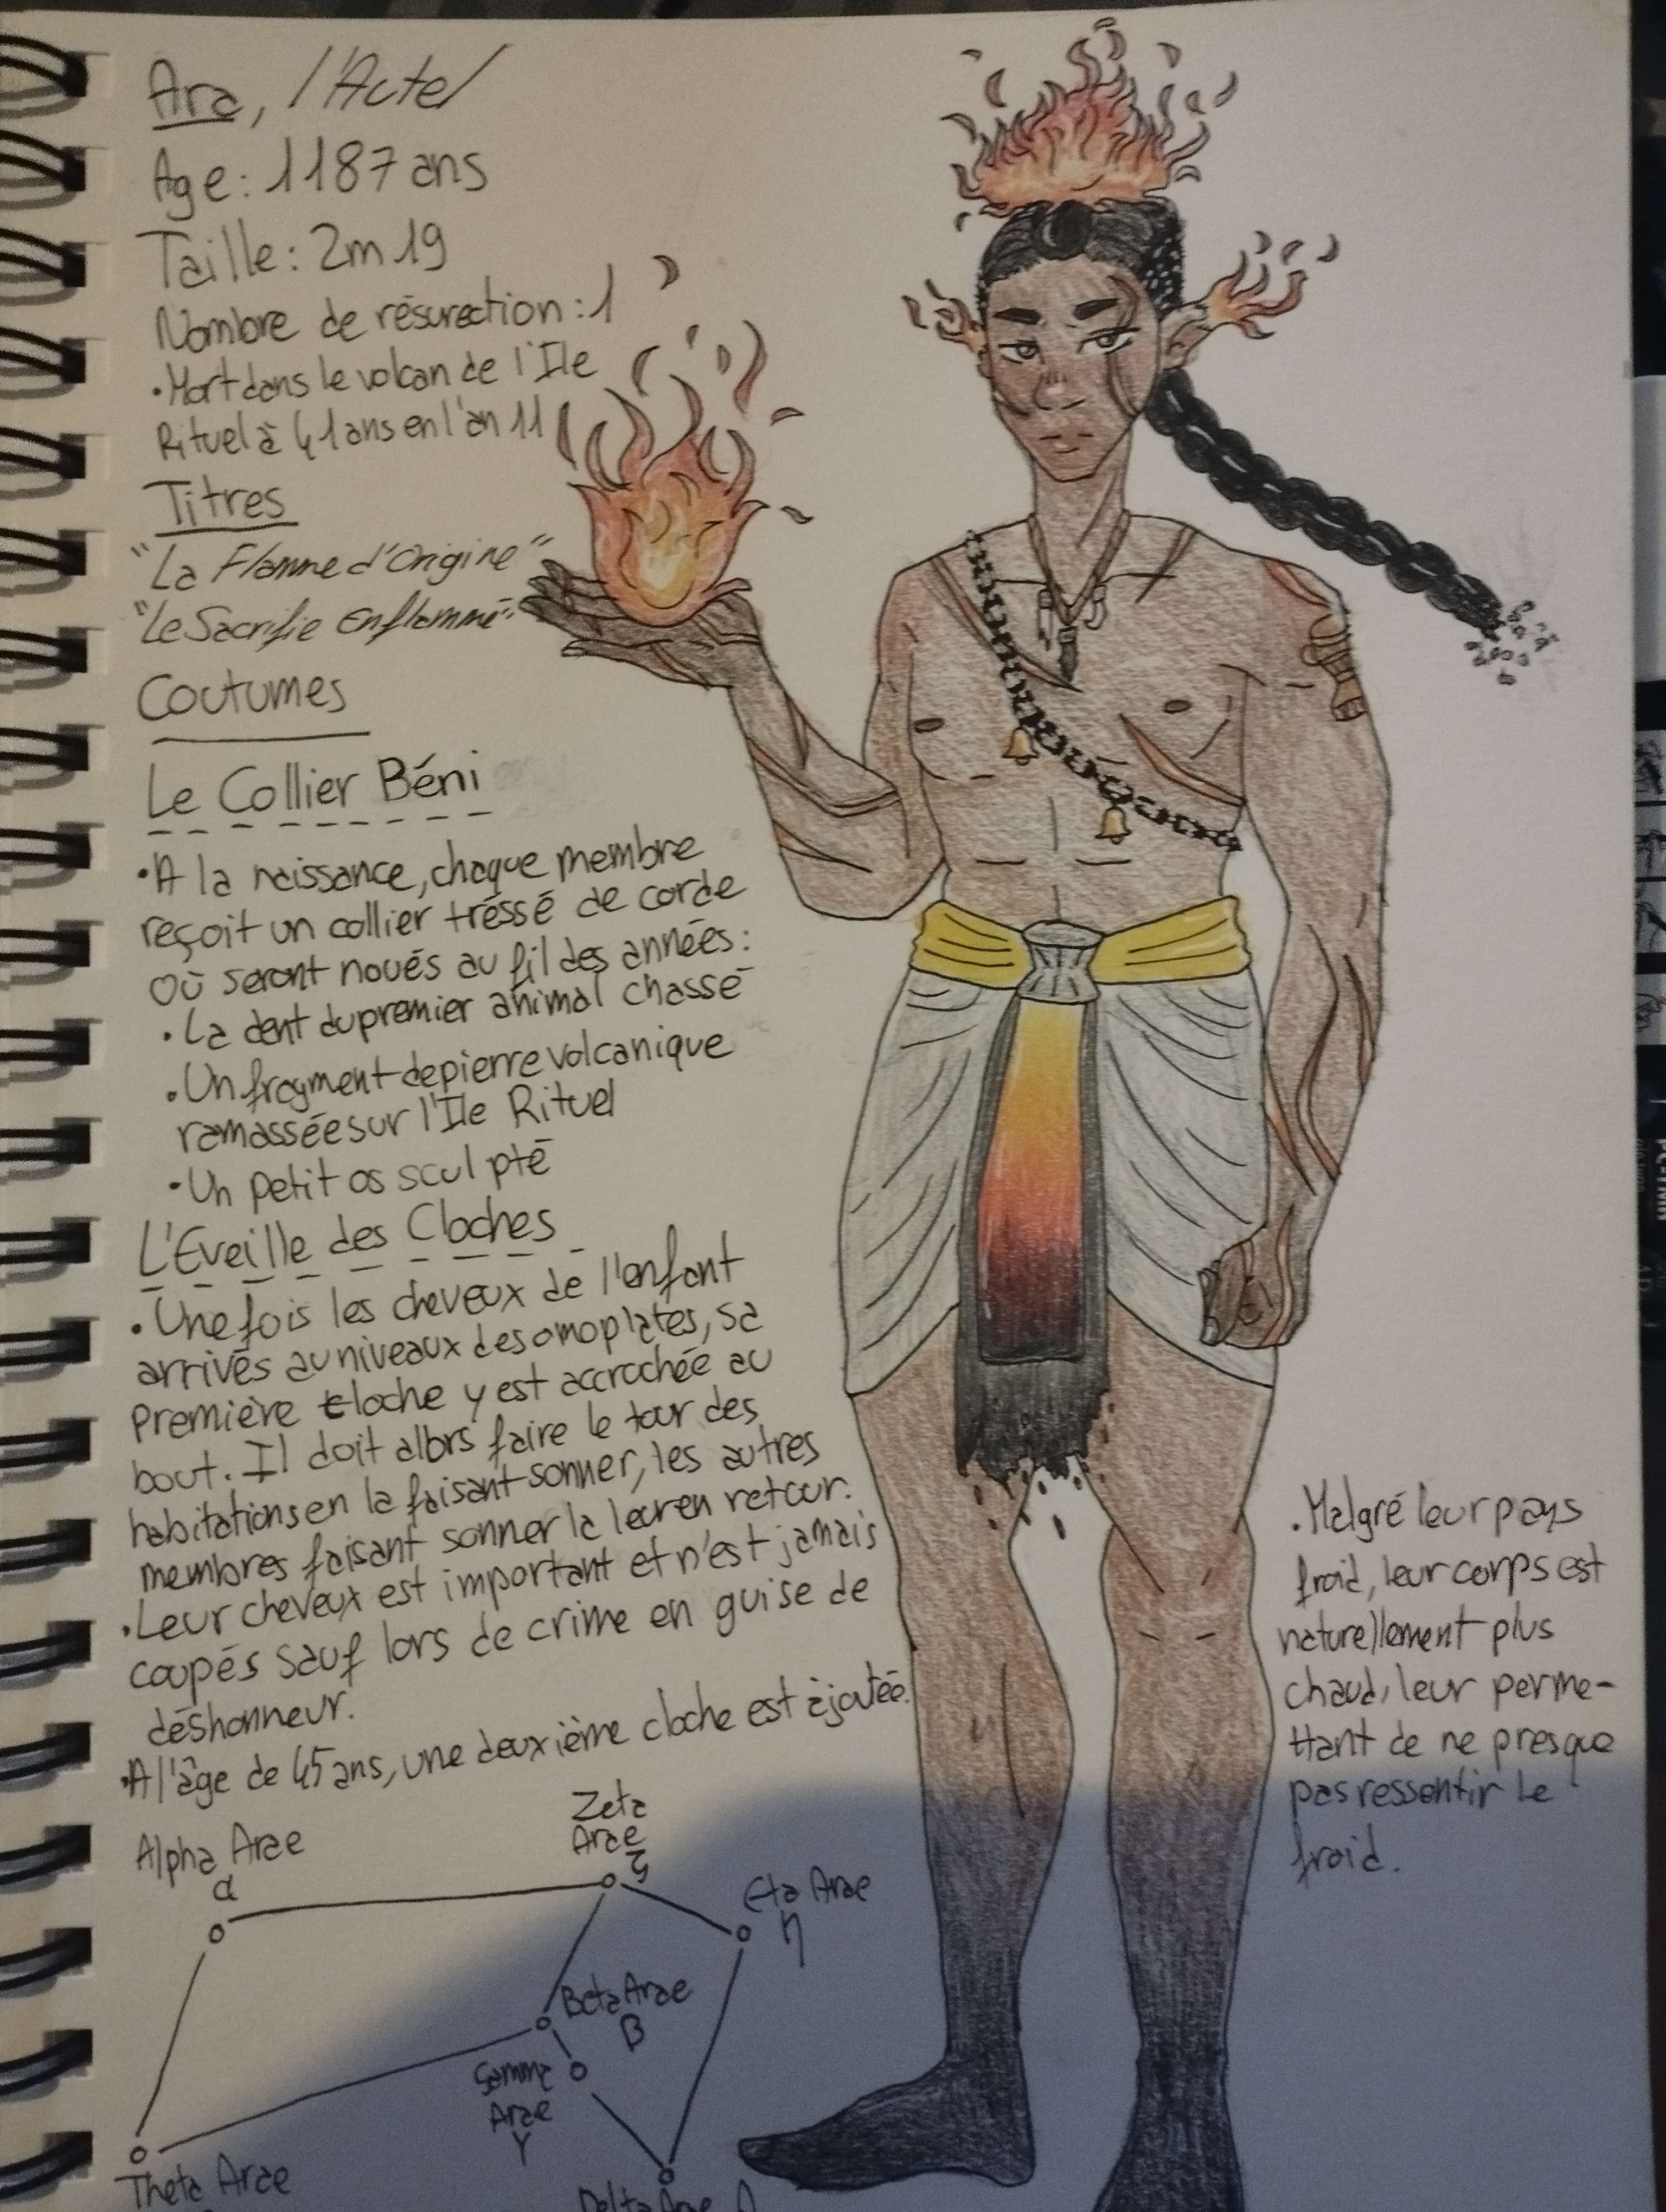 Ara, l'Autel
Age: 1187 ans
Taille: 2m19
Nombre de résurection: 1
•Mort dans le volcan de l'Ile
Rituel à 41 ans en l'an 11
Titres
"La Flamme d'Origine"
"Le Sacrifie Enflammé"
Coutumes
Le Collier Béni
•A la naissance, chaque membre
reçoit un collier tréssé de corde
où seront noués au fil des années:
•La dent du premier animal chassé
•Un fragment de pierre volcanique
ramassée sur l'Ile Rituel
•Un petit os sculpté
L'Eveille des Cloches
•Une fois les cheveux de l'enfant
arrivés au niveaux des omoplates, sa
première cloche y est accrochée au
bout. Il doit alors faire le tour des
habitations en la faisant sonner, les autres
membres faisant sonner la leur en retour.
•Leur cheveux est important et n'est jamais
coupés sauf lors de crime en guise de
déshonneur.
•A l'âge de 45 ans, une deuxième cloche est ajoutée.
•Malgré leur pays
froid, leur corps est
naturellement plus
chaud, leur perme-
ttant de ne presque
pas ressentir le
froid.
Alpha Arae
α
Zeta
Arae
ζ
Eta Arae
η
Beta Arae
β
Gamma
Arae
γ
Theta Arae
Delta Arae